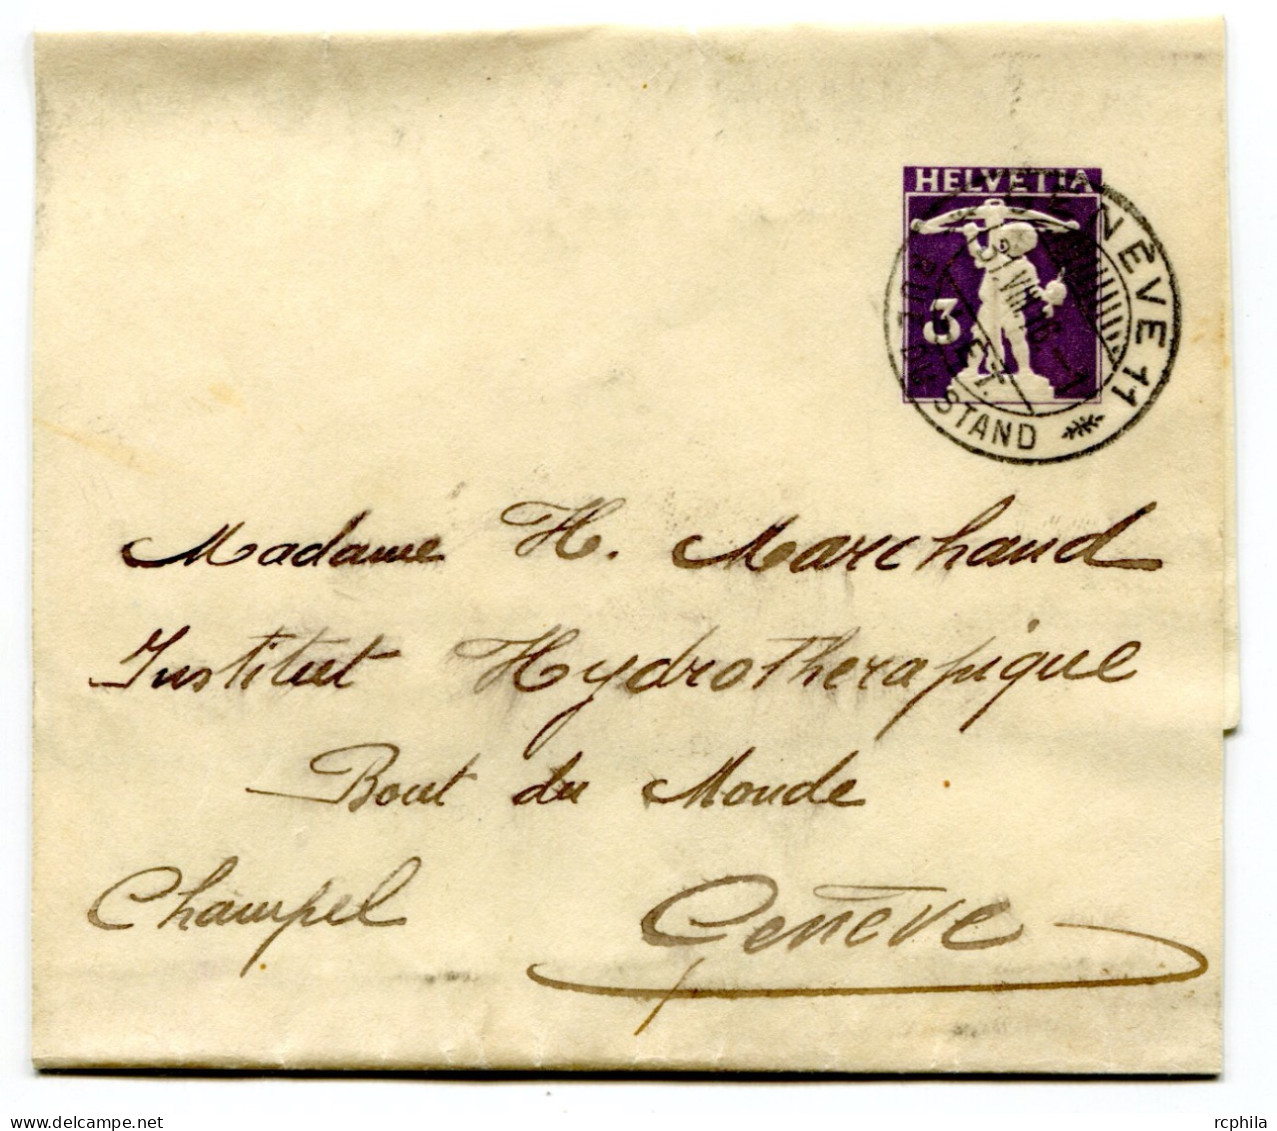 HELVETIA
3
GENÈVE 11
RUE DU STAND
31.VIII.16.–7
LET.
Madame H. Marchand
Institut Hydrothérapique
Bout du Monde
Champel Genève
www.delcampe.net
rcphila